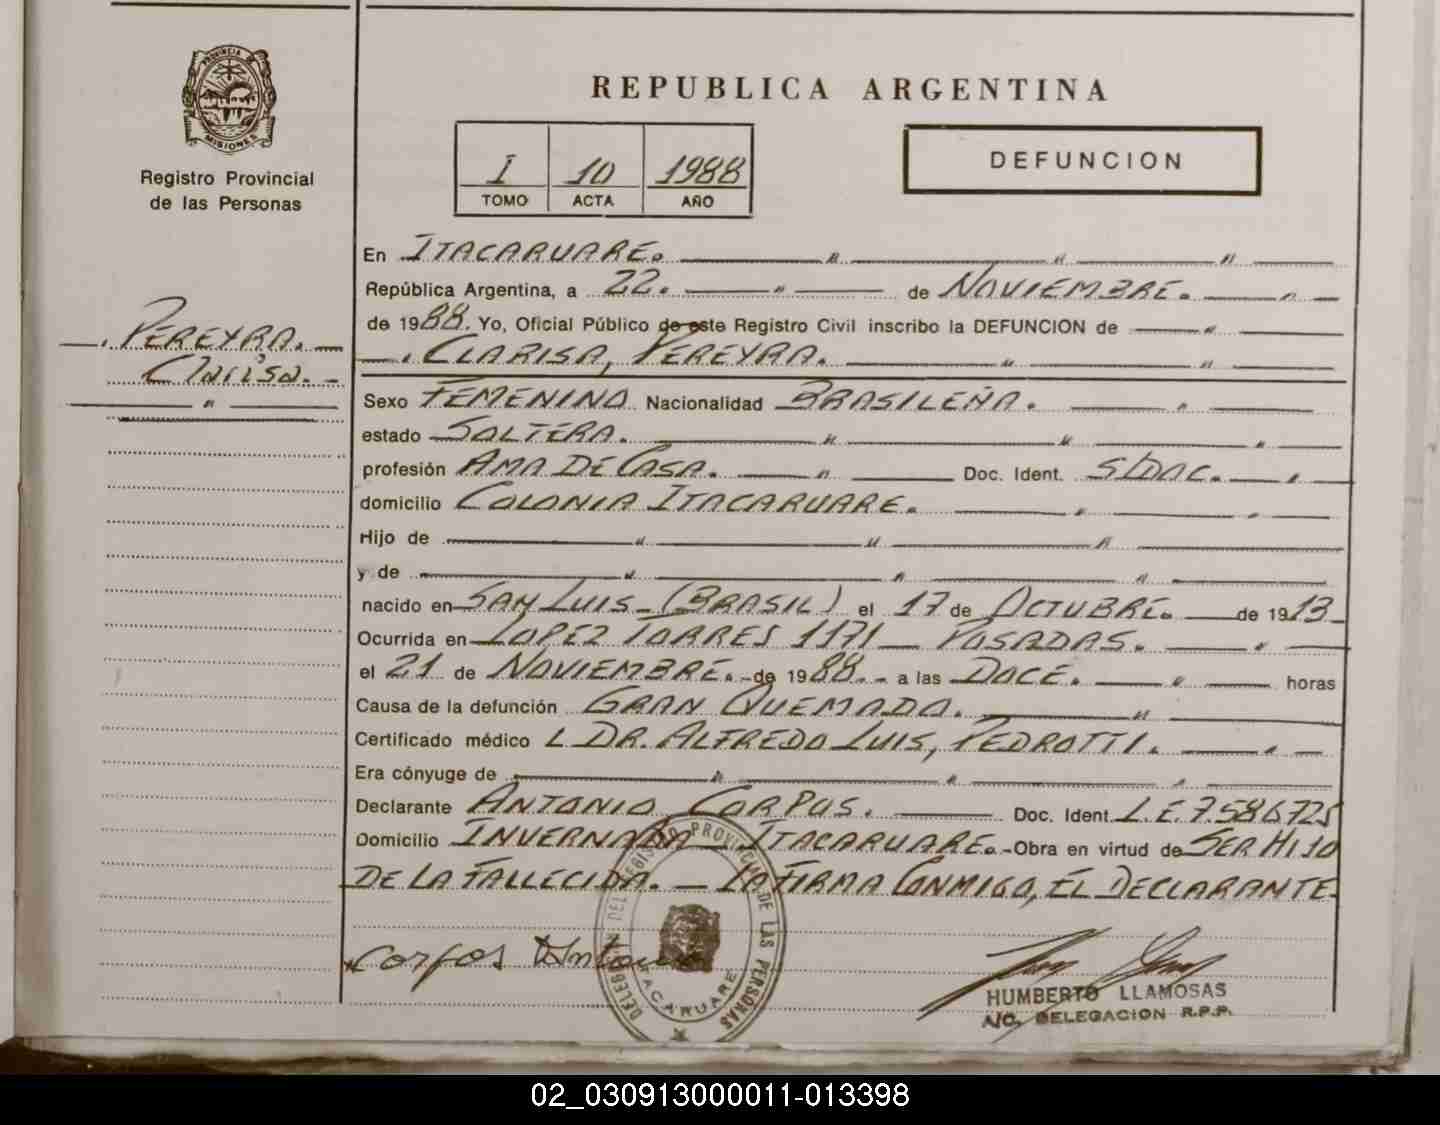 PROVINCIA DE
MISIONES
Registro Provincial
de las Personas
REPUBLICA ARGENTINA
I 10 1988
TOMO ACTA AÑO
DEFUNCION
. PEREYRA. —
Clarisa. -
— " —
En ITACARUARE. — " — " — " —
República Argentina, a 22. — " — de NOVIEMBRE. — " —
de 1988. Yo, Oficial Público de este Registro Civil inscribo la DEFUNCION de — " —
—. CLARISA, PEREYRA. — " — " —
Sexo FEMENINO Nacionalidad BRASILEÑA. — " —
estado SOLTERA. — " — " — " —
profesión AMA DE CASA. — " — Doc. Ident. S/DOC. — " —
domicilio COLONIA ITACARUARE. — " — " —
Hijo de — " — " — " —
y de — " — " — " —
nacido en SAN LUIS - (BRASIL) el 17 de OCTUBRE. — de 1913 -
Ocurrida en LOPEZ TORRES 1171 — POSADAS. — " —
el 21 de NOVIEMBRE. - de 1988. - a las DOCE. — " — horas
Causa de la defunción GRAN QUEMADO. — " —
Certificado médico L DR. ALFREDO LUIS, PEDROTTI. — " —
Era cónyuge de — " — " — " —
Declarante ANTONIO CORPOS. — Doc. Ident. L.E. 7.586.725
Domicilio INVERNADA — ITACARUARE. - Obra en virtud de SER HIJO
DE LA FALLECIDA. — LO FIRMA CONMIGO, EL DECLARANTE-
Corpos Antonio
DELEGACION DEL REGISTRO PROVINCIAL DE LAS PERSONAS
ITACARUARE
HUMBERTO LLAMOSAS
A/C. DELEGACION R.P.P.
02_030913000011-013398